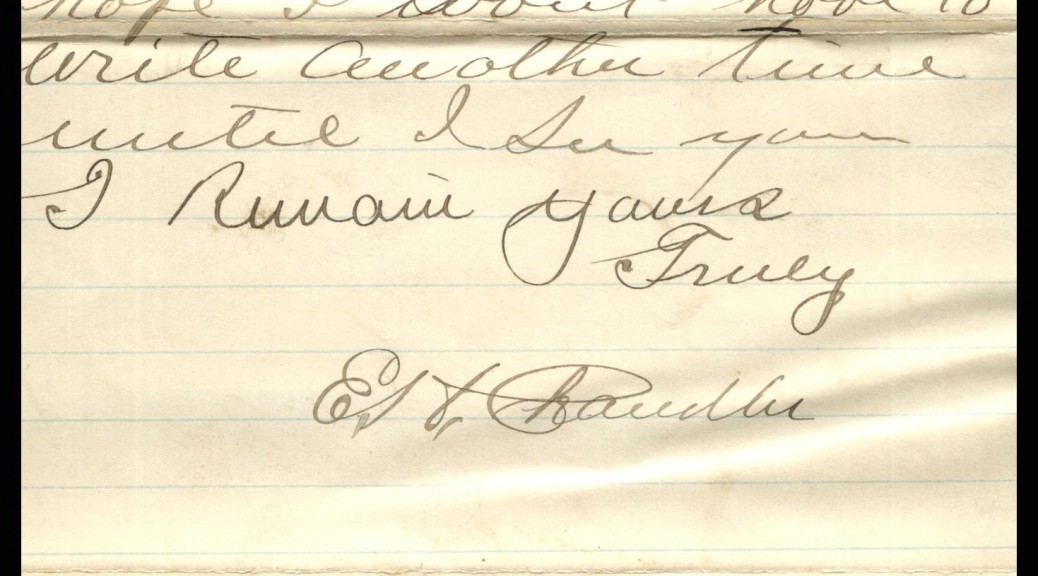 hope I wont have to
write another time
until I see you
I Remain yours
Truly
Chandler